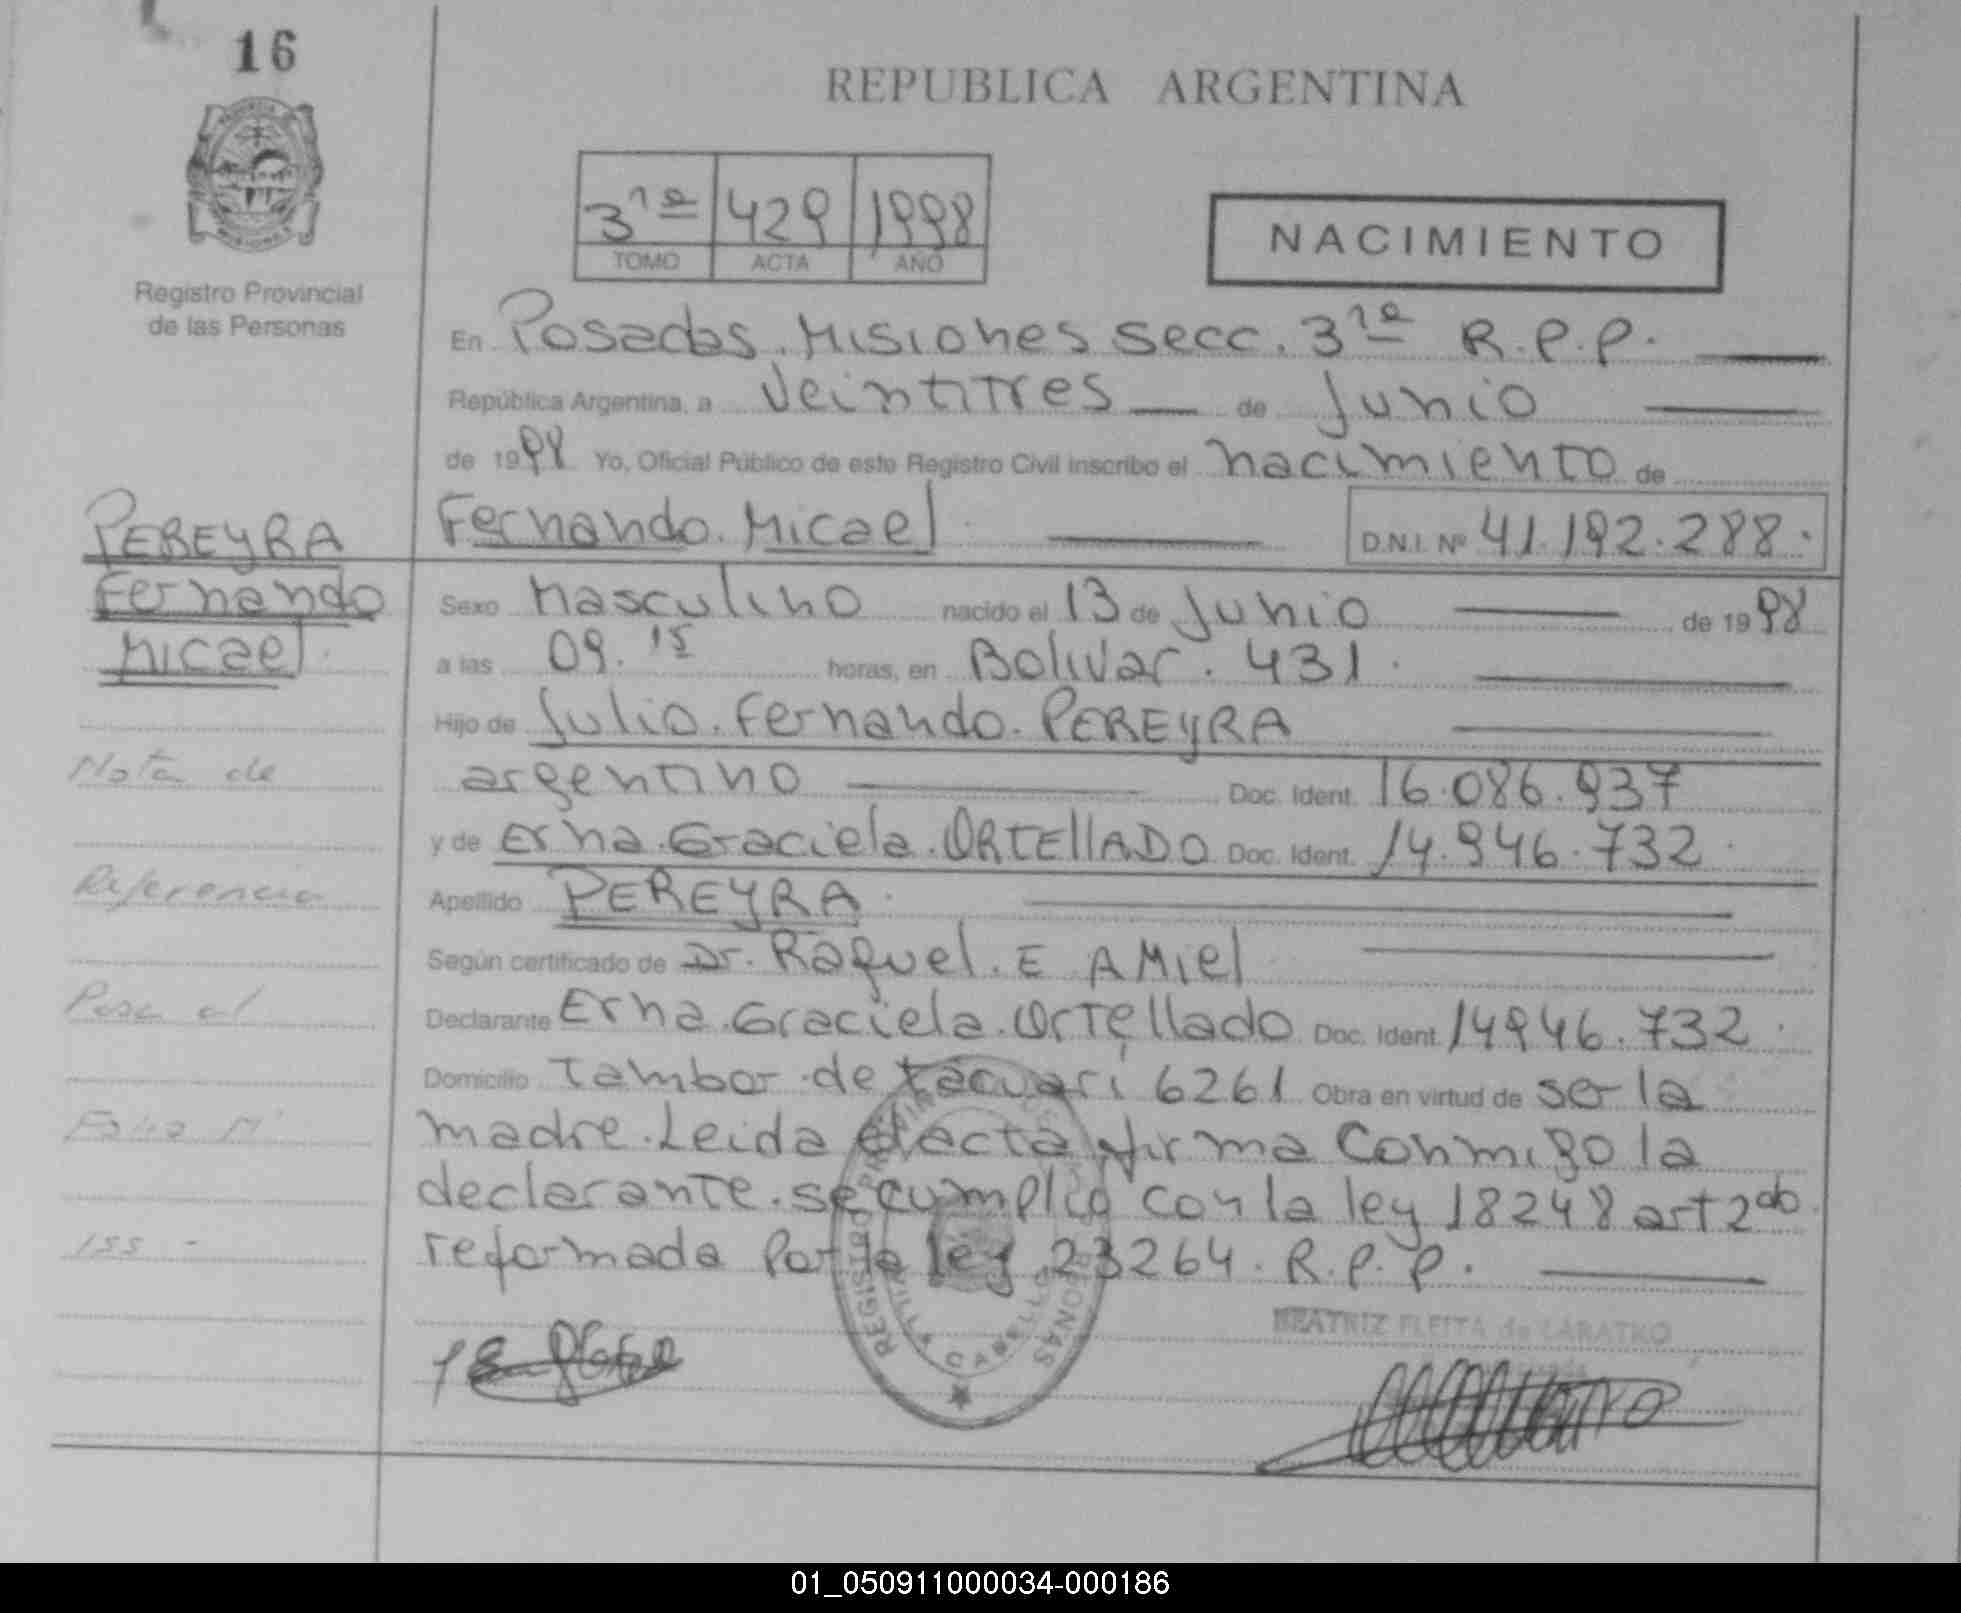 16
REPUBLICA ARGENTINA
3ra 429 1998
TOMO ACTA AÑO
NACIMIENTO
Registro Provincial
de las Personas
En Posadas. Misiones secc. 3ra R.P.P.
República Argentina, a veintitres de Junio
de 1998 Yo, Oficial Público de este Registro Civil inscribo el nacimiento de
Fernando. Micael D.N.I. Nº 41.192.288.
PEREYRA
Fernando
Micael
Sexo masculino nacido el 13 de Junio de 1998
a las 09.15 horas, en Bolivar. 431.
Hijo de Julio. Fernando. PEREYRA
argentino Doc. Ident. 16.086.937
y de Erna. Graciela. ORTEllADO Doc. Ident. 14.946.732.
Apellido PEREYRA.
Según certificado de Dr. Raquel. E AMiel
Declarante Erna. Graciela. Ortellado Doc. Ident. 14946.732.
Domicilio Tambor de tacuari 6261 Obra en virtud de ser la
madre. Leida el acta firma Conmigo la
declarante. se cumplio con la ley 18248 art 2do
reformada por la ley 23264. R.P.P.
Nota de
Referencia
Pasa al
Folio Nº
155 -
BEATRIZ FLEITA de LABATKO
01_050911000034-000186